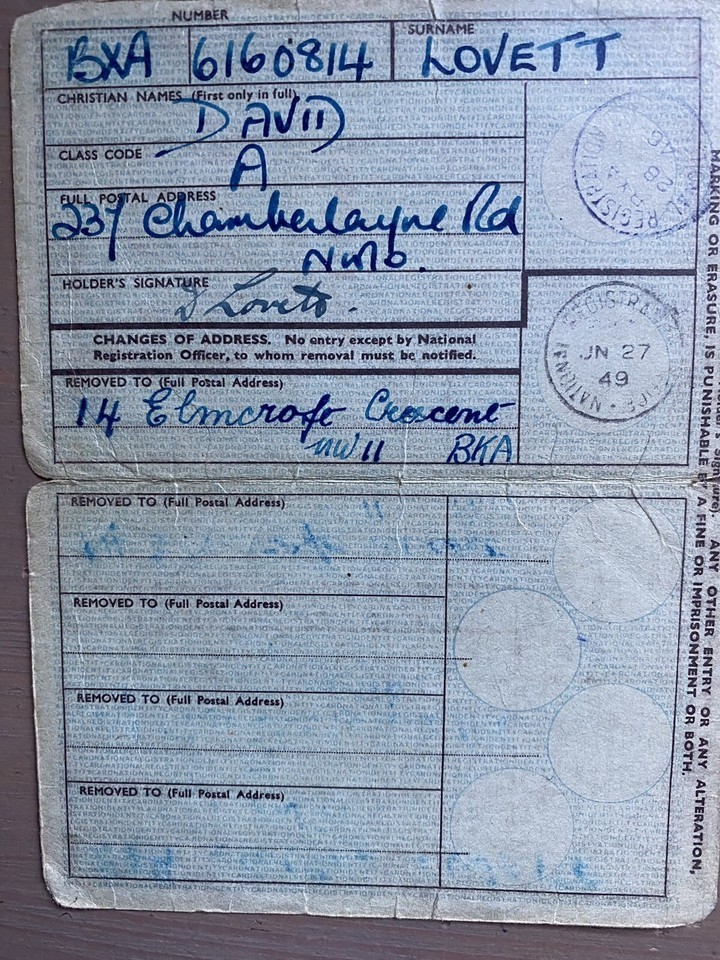 NUMBER
SURNAME
BXA 6160814 LOVETT
CHRISTIAN NAMES (First only in full)
DAVID
CLASS CODE
A
FULL POSTAL ADDRESS
237 Chamberlayne Rd
NW10.
HOLDER'S SIGNATURE
D Lovett.
CHANGES OF ADDRESS. No entry except by National
Registration Officer, to whom removal must be notified.
REMOVED TO (Full Postal Address)
14 Elmcroft Crescent
NW 11 BKA
JN 27
49
REMOVED TO (Full Postal Address)
REMOVED TO (Full Postal Address)
REMOVED TO (Full Postal Address)
REMOVED TO (Full Postal Address)
ANY OTHER ENTRY OR ANY ALTERATION,
MARKING OR ERASURE, IS PUNISHABLE BY A FINE OR IMPRISONMENT OR BOTH.